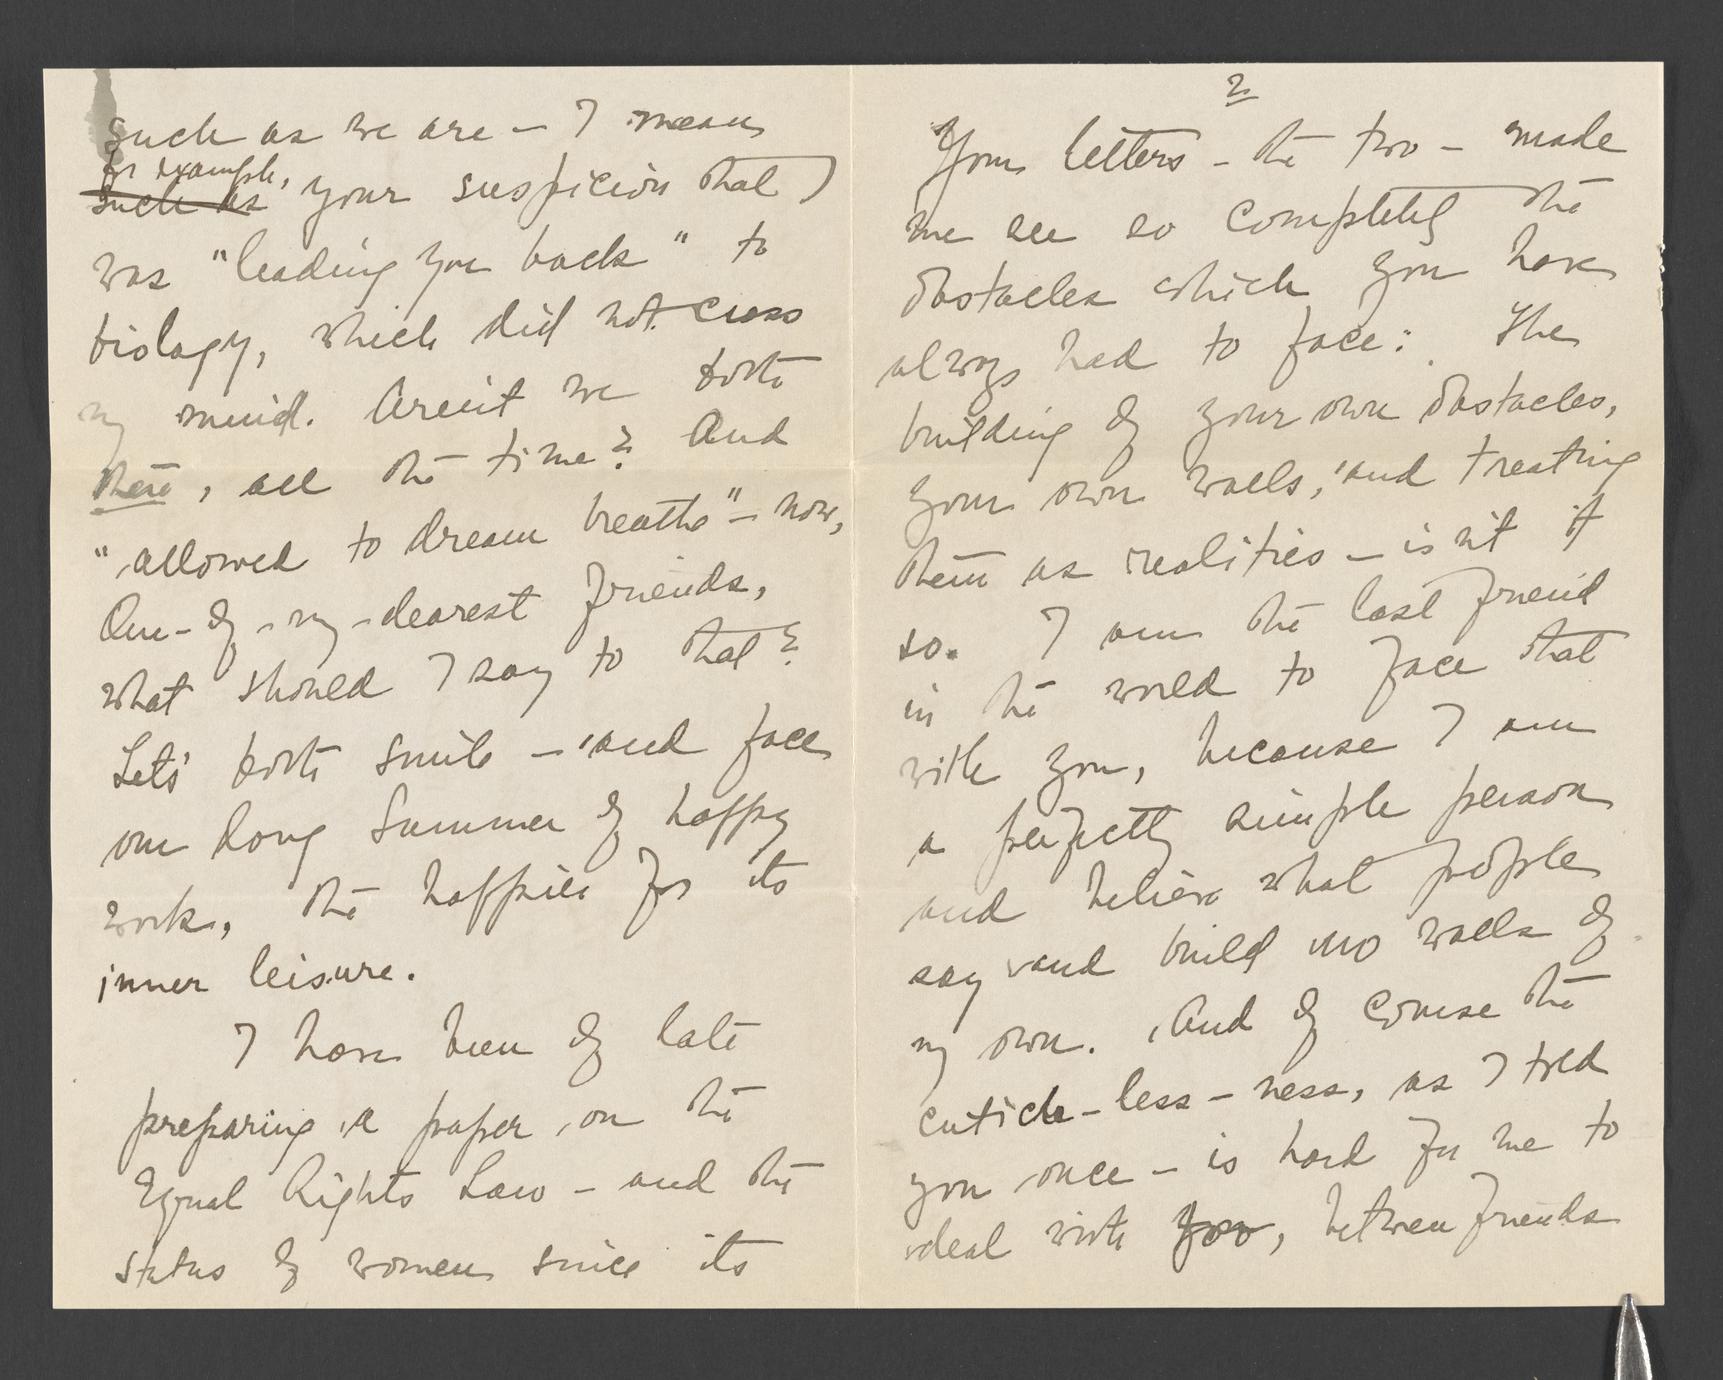 such as we are — I mean
for example,
such as your suspicion that I
was "leading you back" to
biology, which did not cross
my mind. Aren't we both
there, all the time? And
"allowed to dream breathe" — now,
One-of-my-dearest friends,
what should I say to that?
Let's both smile — and face
our long Summer of happy
work, the happier for its
inner leisure.
I have been of late
preparing a paper on the
Equal Rights Law — and the
status of women since its
2
Your letters — the two — made
me see so completely the
obstacles which you have
always had to face: The
building of your own obstacles,
your own walls, and treating
them as realities — isn't it
so. I am the last friend
in the world to face that
with you, because I am
a perfectly simple person
and believe what people
say and build no walls of
my own. And of course the
cuticle-less-ness, as I told
you once — is hard for me to
deal with you, between friends